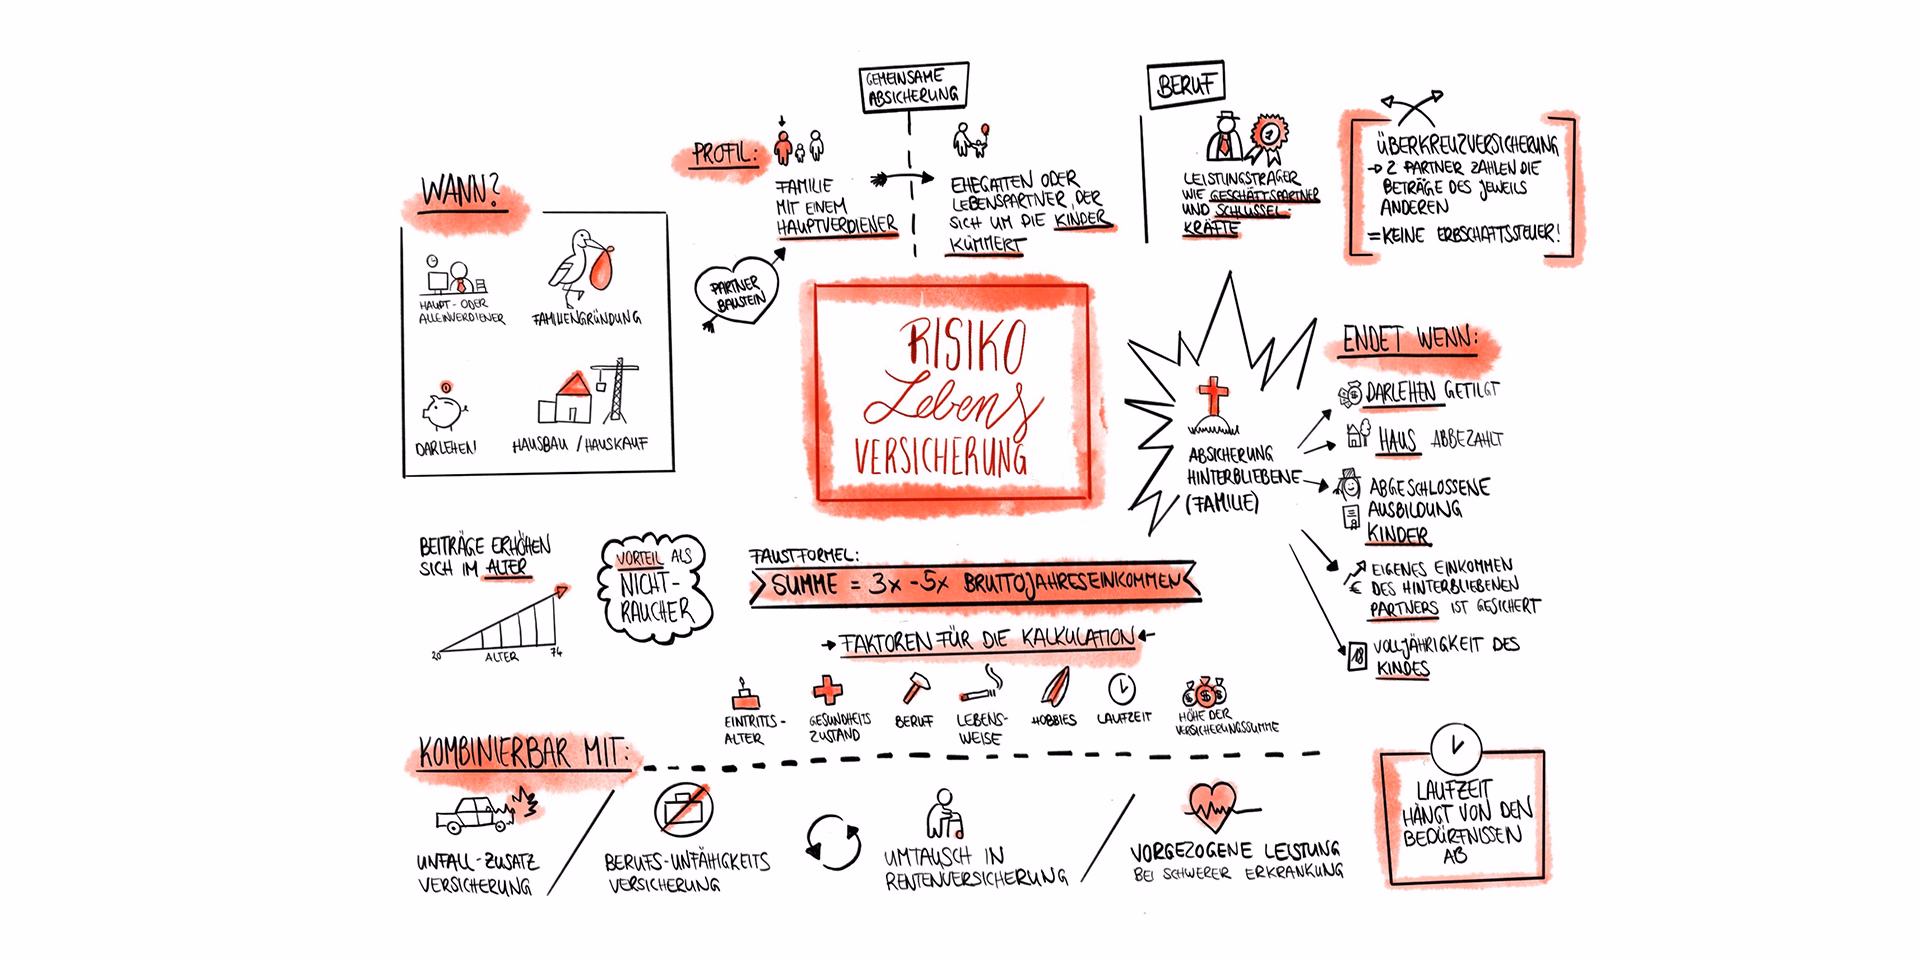 GEMEINSAME
ABSICHERUNG
PROFIL:
FAMILIE
MIT EINEM
HAUPTVERDIENER
EHEGATTEN ODER
LEBENSPARTNER, DER
SICH UM DIE KINDER
KÜMMERT
PARTNER
BAUSTEIN
BERUF
1
LEISTUNGSTRÄGER
WIE GESCHÄFTSPARTNER
UND SCHLÜSSEL-
KRÄFTE
ÜBERKREUZVERSICHERUNG
→ 2 PARTNER ZAHLEN DIE
BETRÄGE DES JEWEILS
ANDEREN
= KEINE ERBSCHAFTSSTEUER!
WANN?
HAUPT- ODER
ALLEINVERDIENER
FAMILIENGRÜNDUNG
DARLEHEN
HAUSBAU / HAUSKAUF
RISIKO
Lebens
VERSICHERUNG
ABSICHERUNG
HINTERBLIEBENE
(FAMILIE)
ENDET WENN:
DARLEHEN GETILGT
HAUS ABBEZAHLT
ABGESCHLOSSENE
AUSBILDUNG
KINDER
EIGENES EINKOMMEN
€ DES HINTERBLIEBENEN
PARTNERS IST GESICHERT
18
VOLLJÄHRIGKEIT DES
KINDES
BEITRÄGE ERHÖHEN
SICH IM ALTER
20
ALTER
74
VORTEIL ALS
NICHT-
RAUCHER
FAUSTFORMEL:
SUMME = 3x - 5x BRUTTOJAHRESEINKOMMEN
→ FAKTOREN FÜR DIE KALKULATION ←
EINTRITTS-
ALTER
GESUNDHEITS
ZUSTAND
BERUF
LEBENS-
WEISE
HOBBIES
LAUFZEIT
$ $ $
HÖHE DER
VERSICHERUNGSSUMME
KOMBINIERBAR MIT:
UNFALL-ZUSATZ
VERSICHERUNG
BERUFS-UNFÄHIGKEITS
VERSICHERUNG
UMTAUSCH IN
RENTENVERSICHERUNG
VORGEZOGENE LEISTUNG
BEI SCHWERER ERKRANKUNG
LAUFZEIT
HÄNGT VON DEN
BEDÜRFNISSEN
AB